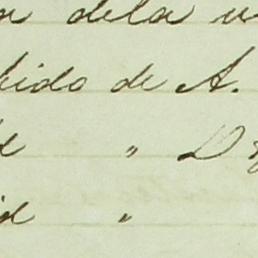 dela
bido de A.
d " D
id "